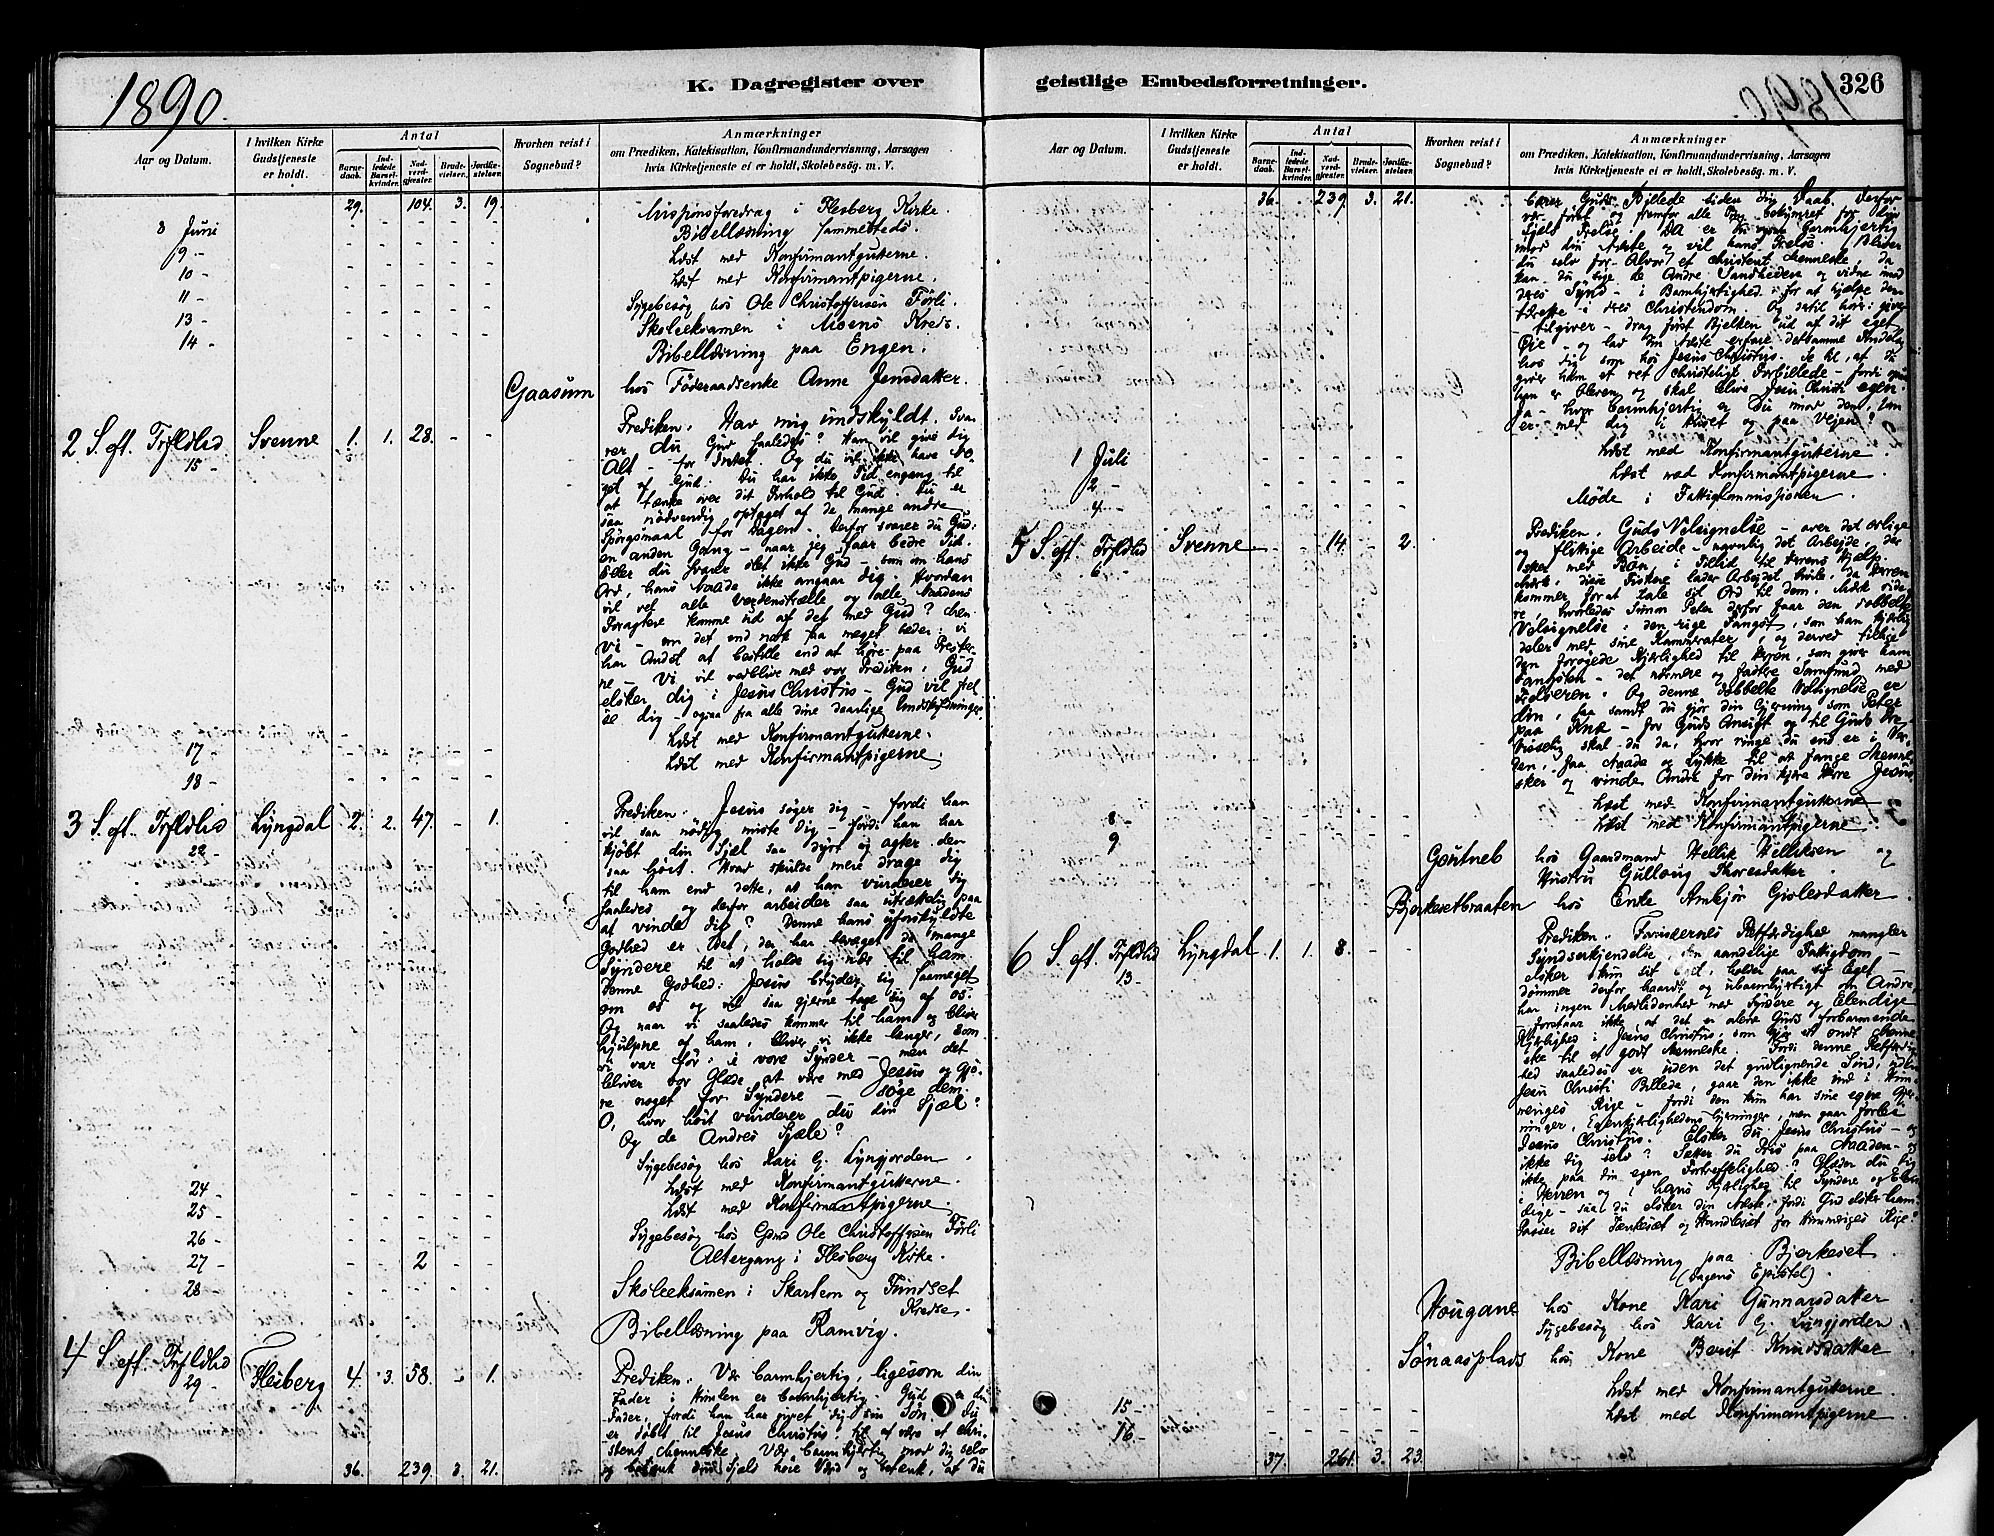 1890.
K. Dagregister over
Aar og Datum.
I hvilken Kirke Gudstjeneste er holdt.
Antal
Barnedaab.
Indledede Barselkvinder.
Nadverdgjester.
Brudevielser.
Jordfæstelser.
Hvorhen reist i Sognebud?
Anmærkninger
om Prædiken, Katekisation, Konfirmandundervisning, Aarsagen
hvis Kirketjeneste ei er holdt, Skolebesøg. m. V.
29. 104. 3. 19.
Missionsforedrag i Flesberg Kirke.
8 Juni
Bibellæsning sammesteds.
9 -
Læst med Konfirmantgutterne.
10 -
Læst med Konfirmantpigerne.
11 -
Sygebesøg hos Ole Christoffersen Førli.
13 -
Skoleeksamen i Moens Kreds.
14 -
Bibellæsning paa Engen.
Gaasum hos Føderaadsenke Anne Jensdatter.
2 S. eft. Trfldhd Svenne 1. 1. 28. - -
15 -
Prediken. Hav mig undskyldt. Sva-
rer du Gud saaledes? Han vil give dig
Alt - for Intet. Og du vil ikke have No-
get af Gud. Du har ikke Tid engang til
at tænke over dit Forhold til Gud. Du er
saa nødvendig optaget af de mange andre
Spørgsmaal for Dagen. Derfor svarer du Gud:
en anden Gang - naar jeg faar bedre Tid.
Eller du svarer slet ikke Gud - som om hans
Ord, hans Naade ikke angaar dig. Hvordan
vil vel alle Verdenstrælle og alle Naadens
Foragtere komme ud af det med Gud? Men
Vi - om det end nok saa meget heder: vi
har Andet at bestille end at høre paa Prester-
ne - Vi vil vedblive med vor Prediken: Gud
elsker dig i Jesus Christus - Gud vil frel
se dig - ogsaa fra alle dine daarlige Undskyldninger.
17 -
Læst med Konfirmantgutterne.
18 -
Læst med Konfirmantpigerne.
3 S. eft. Trfldhd Lyngdal 2. 2. 47. - 1.
22 -
Prediken. Jesus søger dig - fordi han
vil saa nødig miste dig - fordi han har
kjøbt din Sjæl saa dyrt og agter den
saa høit. Hvad skulde mere drage dig
til ham end dette, at han vurderer dig
saaledes og derfor arbeider saa utrættelig paa
at vinde dig? Denne hans uforskyldte
Godhed er det, der har bevæget de mange
Syndere til at holde sig nær til ham
Denne Godhed: Jesus bryder sig saameget
om os og vil saa gjerne tage sig af os.
Og naar vi saaledes kommer til ham og bliver
hjulpne af ham, bliver vi ikke længer, som
vi var før, i vore Synder - men det
bliver vor Glæde at være med Jesus og gjø-
re noget for Syndere - søge dem.
O, hvor høit vurderer du din Sjæl?
Og de Andres Sjæle?
Sygebesøg hos Kari G. Lyngjorden
24 -
Læst med Konfirmantgutterne.
25 -
Læst med Konfirmantpigerne.
26 -
Sygebesøg hos Gmd Ole Christoffersen Førli
27 - 2
Altergang i Flesberg Kirke.
28 -
Skoleeksamen i Skartem og Tundset
Kredse.
Bibellæsning paa Ramvig.
4 S. eft. Trfldhd Flesberg 4. 3. 58. - 1.
29 -
Prediken: Vær barmhjertig, ligesom din
Fader i Himlen er barmhjertig. Gud er din
Fader, fordi han har givet dig sin Søn. Du
er døbt til Jesus Christus: til at være et chri-
stent Menneske. Vær barmhjertig mod dig selv
og betænk din Sjæls høie Værd og betænk, at du
36. 239. 3. 21.
geistlige Embedsforretninger.
1890.
326
Aar og Datum.
I hvilken Kirke Gudstjeneste er holdt.
Antal
Barnedaab.
Indledede Barselkvinder.
Nadverdgjester.
Brudevielser.
Jordfæstelser.
Hvorhen reist i Sognebud?
Anmærkninger
om Prædiken, Katekisation, Konfirmandundervisning, Aarsagen
hvis Kirketjeneste ei er holdt, Skolebesøg. m. V.
36. 239. 3. 21.
bærer Guds Billede siden din Daab. Derfor
vær først og fremfor alle Ting bekymret for din
Sjæls Frelse. Da er du barmhjertig
mod din Næste og vil hans Frelse. Bliver
du selv for Alvor et christent Menneske, da
kan du sige de Andre Sandheden og vidne imod
deres Synd - i Barmhjertighed - for at hjælpe dem
tilrette i deres Christendom. Og
- tilgiver - drag først Bjelken ud af dit eget
Øie - og lad din Næste erfare det samme Sindelag
hos dig som hos Jesus Christus. Se til, at du
giver ham et ret christeligt Forbillede - fordi ogsaa
han er og skal blive Jesu Christi egen.
Ja - hvor barmhjertig er Du mod den, som
er med dig i Huset og paa Vejen?
1 Juli
Læst med Konfirmantgutterne.
2 -
Læst med Konfirmantpigerne.
4 -
Møde i Fattigkommissionen.
5 S. eft. Trfldhd Svenne - - 14. - 2.
6 -
Prediken. Guds Velsignelse - over det ærlige
og flittige Arbeide - navnlig det Arbeide, der
sker med Bøn, i Tillid til Herrens Hjælp.
Mærk, disse Fiskere lader Arbejdet hvile, da Herren
kommer for at tale sit Ord til dem. Mærk vide-
re, hvorledes Simon Peter derfor faar den dobbelte
Velsignelse: den rige Fangst, som han kjærlig
deler med sine Kamerater, og derved tillige
den forøgede Kjærlighed til Herren, som giver ham
Fangsten - det nærmere og fastere Samfund med
Frelseren. Og denne dobbelte Velsignelse er
din, saa sandt du gjør din Gjerning som Peter
paa Knæ - for Guds Ansigt og til Guds Ære.
Visselig skal du da, hvor ringe du end er i Ver-
den, faa Naade og Lykke til at fange Menne-
sker og vinde Andre for din kjære Herre Jesus
8 -
Læst med Konfirmantgutterne
9
Læst med Konfirmantpigerne.
Gøutneb hos Gaardmand Hellik Helliksen og
Hustru Gullaug Thoresdatter
Bjerkesetbraaten hos Enke Ambjør Gislesdatter
6 S. eft. Trfldhd Lyngdal 1. 1. 8. - -
13 -
Prediken. Farisæernes Retfærdighed mangler
Syndserkjendelse, den aandelige Fattigdom -
elsker kun sit Eget, holder paa sit Eget -
dømmer derfor haardt og ubarmhjertigt om Andre,
har ingen Medlidenhed med Syndere og Elendige
- forstaar ikke, at det er alene Guds forbarmende
Kjærlighed i Jesus Christus som gjør et ondt Menne
ske til et godt Menneske. Fordi denne Retfærdig-
hed saaledes er uden det gudlignende Sind, uden
Jesu Christi Billede, gaar den ikke ind i Him-
meriges Rige - fordi den kun har sine egne Gjer-
ninger, Egenkjærlighedens Gjerninger, men gaar forbi
Jesus Christus. Elsker du Jesus Christus - og
ikke dig selv? Sætter du Pris paa Naaden - og
ikke paa din egen Fortreffelighed? Glæder du dig
i Herren og i hans Kjærlighed til Syndere og Elen-
dige - saa du elsker din Næste, fordi Gud elsker ham -
Passer dit Tænkesæt og Handlesæt for Himmeriges Rige?
Bibellæsning paa Bjerkeset
(Dagens Epistel).
Hougane hos Kone Kari Gunnarsdatter
Sygebesøg hos Kari G. Lyngjorden
Sønaasplads hos Kone Berit Knudsdatter
15 -
Læst med Konfirmantgutterne.
16 -
Læst med Konfirmantpigerne
37. 261. 3. 23.